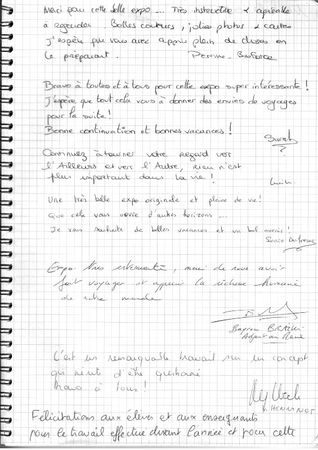 Merci pour cette belle expo ... Très instructive & agréable
à regarder. Belles couleurs, jolies photos & cartes
J'espère que vous avez appris plein de choses en
le préparant.
Bravo à toutes et à tous pour cette expo super intéressante !
J'espère que tout cela vous a donner des envies de voyages
pour la suite !
Bonne continuation et bonnes vacances !
Continuez à tourner votre regard vers
l'Ailleurs et vers l'Autre, rien n'est
plus important dans la vie !
Une très belle expo originale et pleine de vie !
Que cela vous ouvre d'autres horizons ...
Je vous souhaite de belles vacances et un bel avenir !
Expo très intéressante, merci de nous avoir
fait voyager et apprécier la richesse humaine
de notre monde
Adjoint au Maire
C'est un remarquable travail sur un concept
qui mérite d'être questionné
Bravo à tous !
Félicitations aux élèves et aux enseignants
pour le travail effectué durant l'année et pour cette